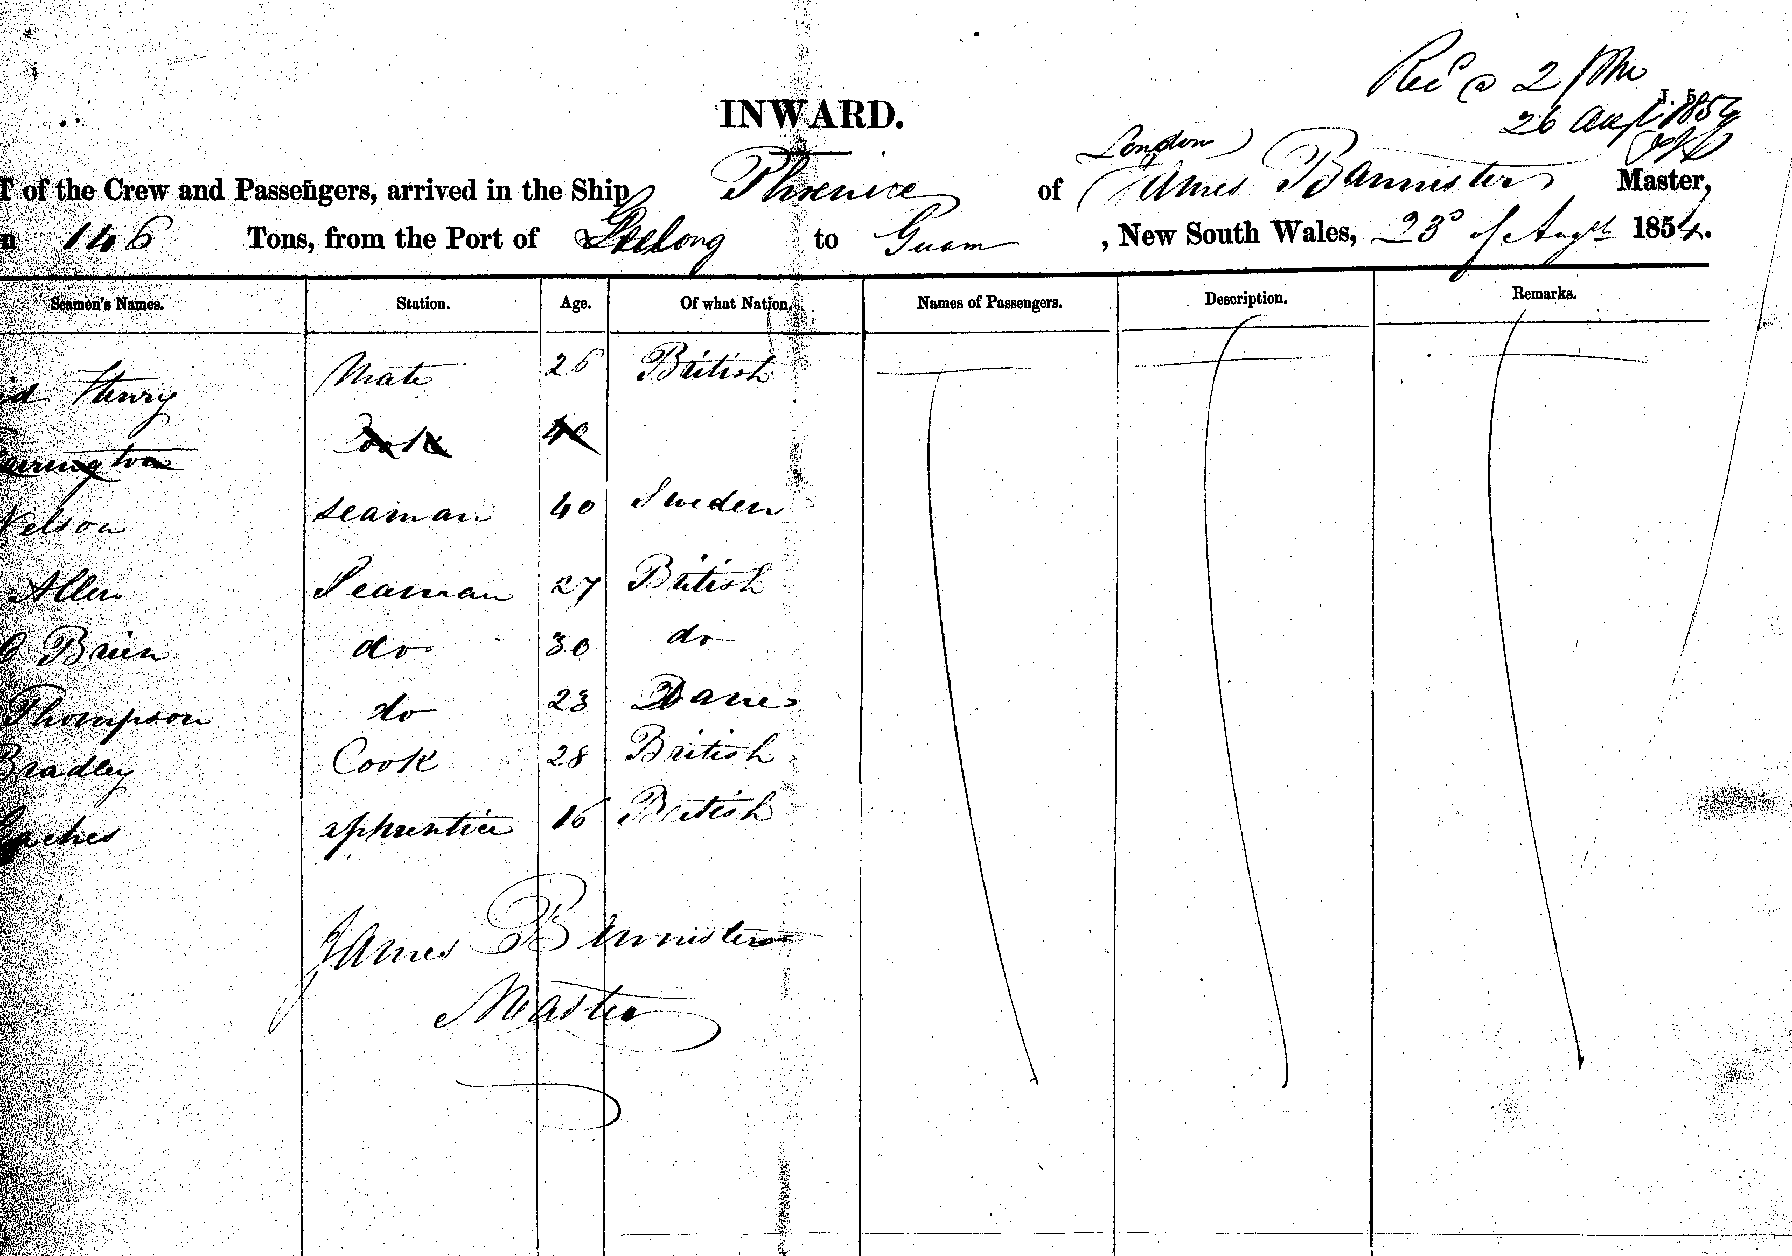 Recd @ 2 PM
26 Augt. 1854
INWARD.
London
T of the Crew and Passengers, arrived in the Ship Phoenice of James Bannister Master,
n 146 Tons, from the Port of Geelong to Guam , New South Wales, 23d of Augt 1854.
Seamen's Names. Station. Age. Of what Nation. Names of Passengers. Description. Remarks.
id Henry Mate 26 British
arrington Cook 40
Nelson seaman 40 Sweden
Allen Seaman 27 British
O Brien do 30 do
Thompson do 23 Dane
Bradley Cook 28 British
apprentice 16 British
James Bannister
Master